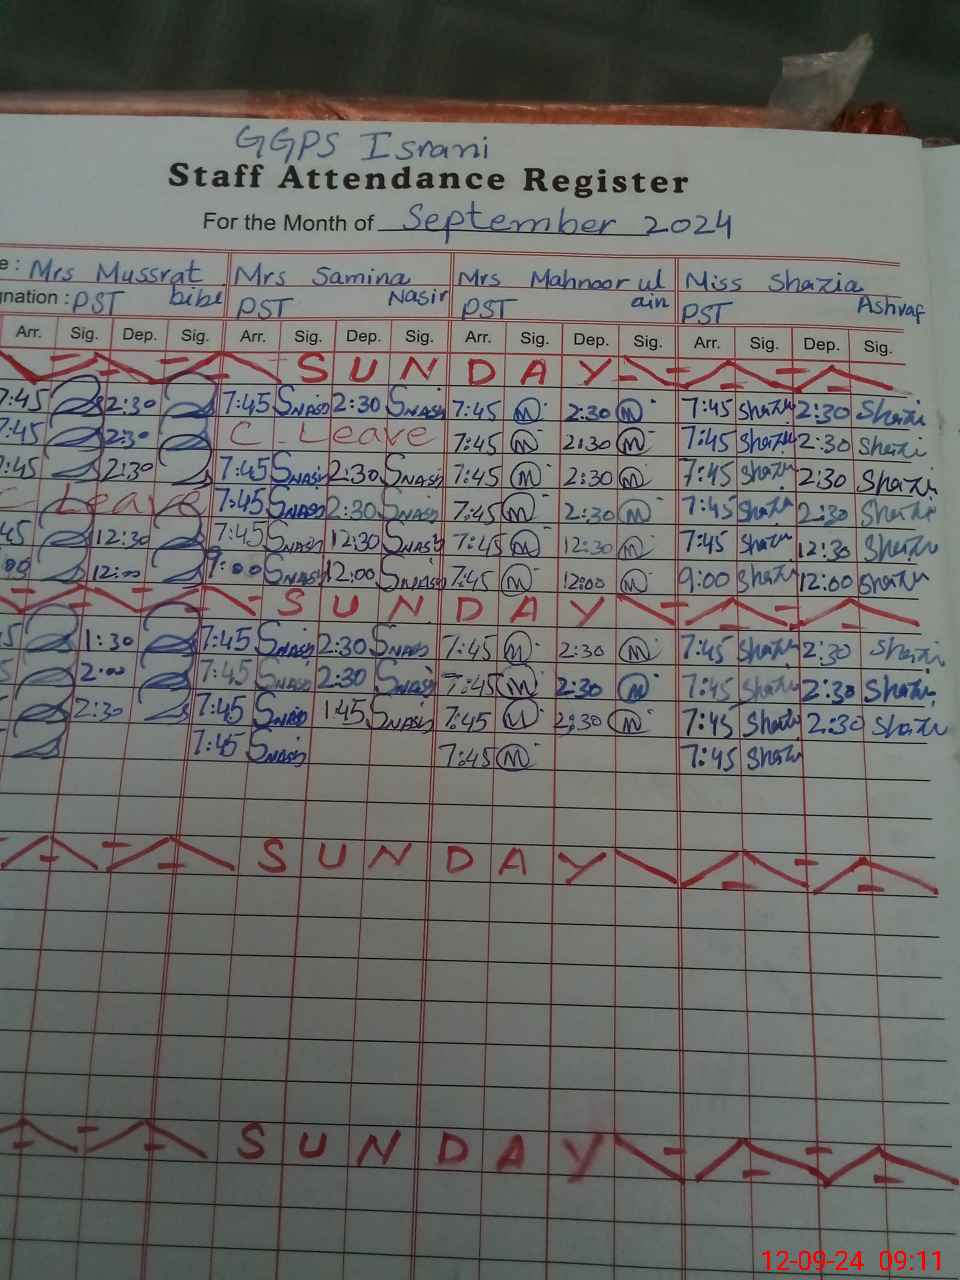 GGPS Israni
Staff Attendance Register
For the Month of September 2024
e : Mrs Mussrat Mrs Samina Mrs Mahnoor ul Miss Shazia
gnation : PST bibi PST Nasir PST ain PST Ashraf
Arr. Sig. Dep. Sig. Arr. Sig. Dep. Sig. Arr. Sig. Dep. Sig. Arr. Sig. Dep. Sig.
SUNDAY
7:45 2:30 7:45 SNASIR 2:30 SNASIR 7:45 M 2:30 M 7:45 Shazia 2:30 Shazia
7:45 2:30 C_Leave 7:45 M 2:30 M 7:45 Shazia 2:30 Shazia
7:45 2:30 7:45 SNASIR 2:30 SNASIR 7:45 M 2:30 M 7:45 Shazia 2:30 Shazia
C Leave 7:45 SNASIR 2:30 SNASIR 7:45 M 2:30 M 7:45 Shazia 2:30 Shazia
45 12:30 7:45 SNASIR 12:30 SNASIR 7:45 M 12:30 M 7:45 Shazia 12:30 Shazia
00 12:00 9:00 SNASIR 12:00 SNASIR 7:45 M 12:00 M 9:00 Shazia 12:00 Shazia
SUNDAY
5 1:30 7:45 SNASIR 2:30 SNASIR 7:45 M 2:30 M 7:45 Shazia 2:30 Shazia
5 2:00 7:45 SNASIR 2:30 SNASIR 7:45 M 2:30 M 7:45 Shazia 2:30 Shazia
2:30 7:45 SNASIR 1:45 SNASIR 7:45 M 2:30 M 7:45 Shazia 2:30 Shazia
7:45 SNASIR 7:45 M 7:45 Shazia
SUNDAY
SUNDAY
12-09-24 09:11